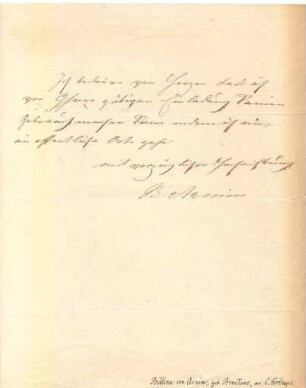 Ich bedaure von Herzen daß ich
von Ihrer gütigen Einladung keinen
Gebrauch machen kann indem ich nie
an öffentliche Orte gehe
mit vorzüglicher Hochachtung
B. Arnim
Bettina von Arnim, geb. Brentano, an